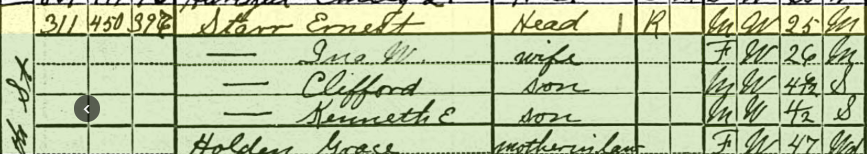 311 450 396 Starr Ernest Head 1 R M W 25 M
— Ina W. wife F W 26 M
— Clifford son M W 4½ S
— Kenneth E son M W ½ S
St Holden Grace mother in law F W 47 Wd